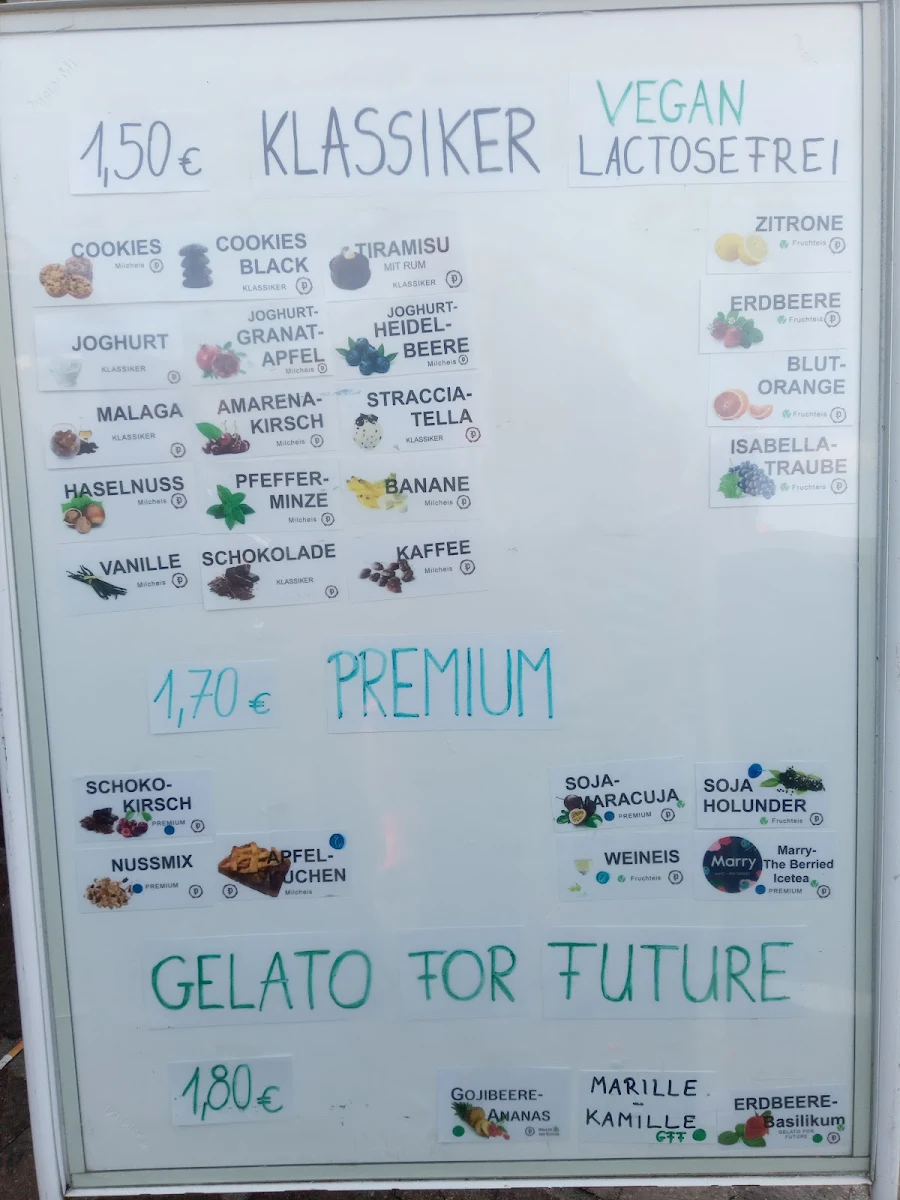 1,50 €
KLASSIKER
VEGAN
LACTOSEFREI
COOKIES
Milcheis
COOKIES
BLACK
KLASSIKER
TIRAMISU
MIT RUM
KLASSIKER
ZITRONE
Fruchteis
JOGHURT
KLASSIKER
JOGHURT-
GRANAT-
APFEL
Milcheis
JOGHURT-
HEIDEL-
BEERE
Milcheis
ERDBEERE
Fruchteis
MALAGA
KLASSIKER
AMARENA-
KIRSCH
Milcheis
STRACCIA-
TELLA
KLASSIKER
BLUT-
ORANGE
Fruchteis
HASELNUSS
Milcheis
PFEFFER-
MINZE
Milcheis
BANANE
Milcheis
ISABELLA-
TRAUBE
Fruchteis
VANILLE
Milcheis
SCHOKOLADE
KLASSIKER
KAFFEE
Milcheis
1,70 €
PREMIUM
SCHOKO-
KIRSCH
PREMIUM
SOJA-
MARACUJA
PREMIUM
SOJA
HOLUNDER
Fruchteis
NUSSMIX
PREMIUM
APFEL-
KUCHEN
Milcheis
WEINEIS
Fruchteis
Marry
Marry-
The Berried
Icetea
PREMIUM
GELATO FOR FUTURE
1,80 €
GOJIBEERE-
ANANAS
MARILLE
-
KAMILLE
GFF
ERDBEERE-
Basilikum
GELATO FOR
FUTURE